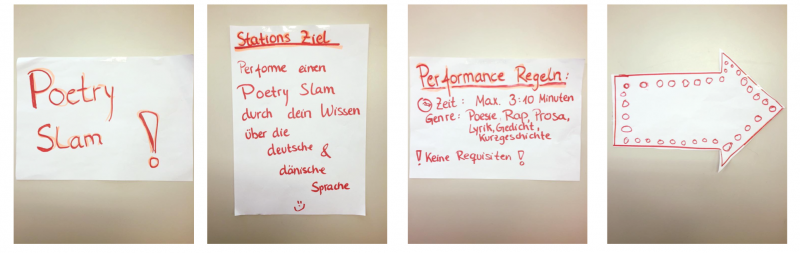 Poetry
Slam !
Stations Ziel
Performe einen
Poetry Slam
durch dein Wissen
über die
deutsche &
dänische
Sprache
Performance Regeln:
Zeit: Max. 3:10 Minuten
Genre: Poesie, Rap, Prosa,
Lyrik, Gedicht,
Kurzgeschichte
! Keine Requisiten !